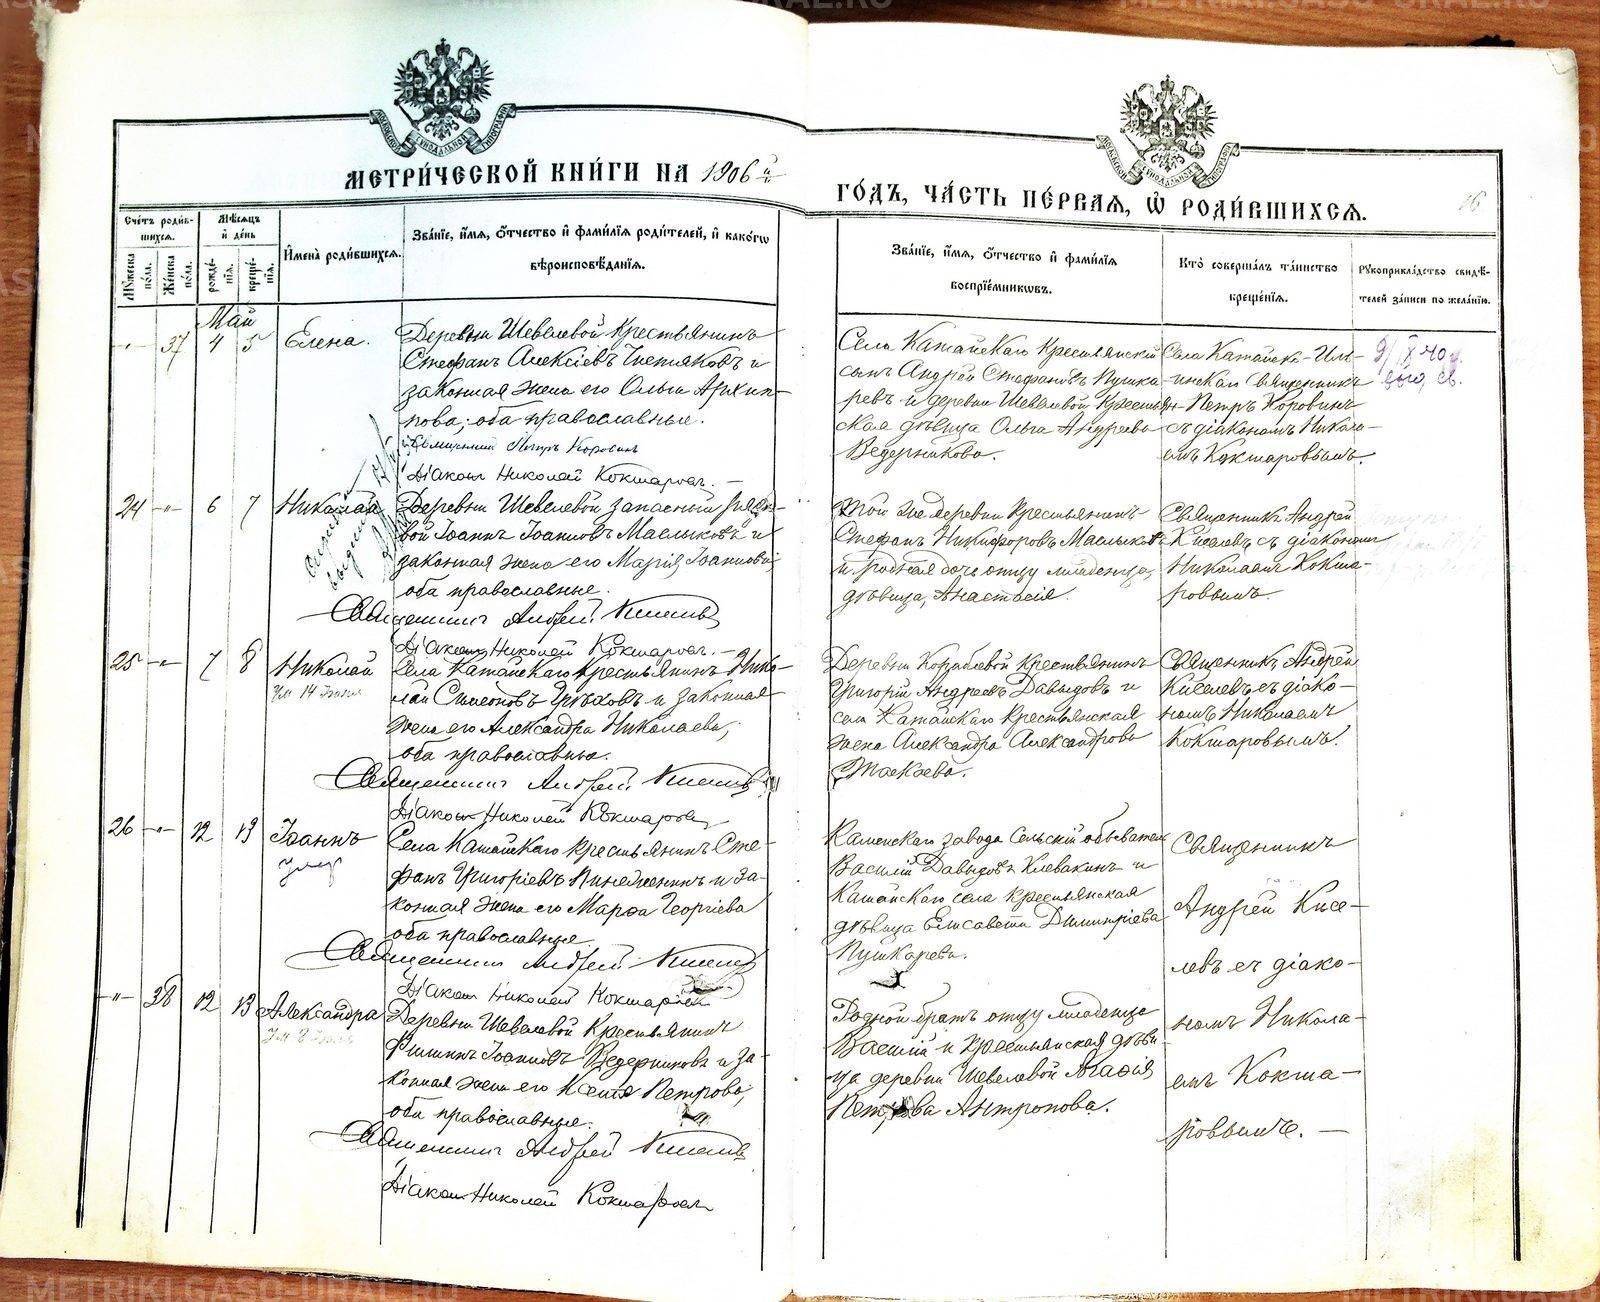 METRIKI.GASO-URAL.RU
МЕТРИ́ЧЕСКОЙ КНИ́ГИ НА 1906 й
ГО́ДЪ, ЧА́СТЬ ПЕ́РВАЯ, Ѡ҆ РОДИ́ВШИХСЯ.
Сче́тъ роди́в-
шихся.
Мѣ́сяцъ
и҆ де́нь
Му́жеска по́ла.
Же́нска по́ла.
рожде́-нїя.
креще́-нїя.
И҆мена̀ роди́вшихся.
Зва́нїе, и҆́мя, ѻ҆́тчество и҆ фами́лїя роди́телей, и҆ како́гѡ
вѣроисповѣ́данїя.
Зва́нїе, и҆́мя, ѻ҆́тчество и҆ фами́лїя
воспрїе́мникѡвъ.
Кто̀ соверша́лъ та́инство
креще́нїя.
Рукоприкла́дство свидѣ́-
телей за́писи по жела́нїю.
Май
-„- 37 4 5 Елена.
Деревни Шевелевой крестьянинъ
Стефанъ Алексіевъ Чистяковъ и
законная жена его Ольга Архип-
пова; оба православные.
Священникъ Петръ Коровинъ
Діаконъ Николай Кокшаровъ. —
Села Катайскаго Крестьянскій
сынъ Андрей Стефановъ Пушка-
ревъ и деревни Шевелевой Крестьян-
ская дѣвица Ольга Андреева
Ведерникова.
Села Катайско-Иль-
инскаго Священникъ
Петръ Коровинъ
съ діакономъ Никола-
емъ Кокшаровымъ.
24 -„- 6 7 Николай
Деревни Шевелевой запасный рядо-
вой Іоаннъ Іоанновъ Маслыковъ и
законная жена его Марія Іоаннова;
оба православные.
Священникъ Андрей Киселевъ
Діаконъ Николай Кокшаровъ. —
Той же деревни крестьянинъ
Стефанъ Никифоровъ Маслыковъ
и родная дочь отцу младенца,
дѣвица, Анастасія.
Священникъ Андрей
Киселевъ съ діакономъ
Николаемъ Кокша-
ровымъ.
25 -„- 7 8 Николай
Ум 14 Іюля
Села Катайскаго крестьянинъ Нико-
лай Симеоновъ Грѣховъ и законная
жена его Александра Николаева;
оба православные.
Священникъ Андрей Киселевъ
Діаконъ Николай Кокшаровъ
Деревни Кораблевой Крестьянинъ
Григорій Андреевъ Давыдовъ и
села Катайскаго крестьянская
жена Александра Александрова
Священникъ Андрей
Киселевъ съ діако-
номъ Николаемъ
Кокшаровымъ.
26 -„- 12 13 Іоаннъ
умер
Села Катайскаго крестьянинъ Сте-
фанъ Григоріевъ Пинеженинъ и за-
конная жена его Марѳа Георгіева
оба православные.
Священникъ Андрей Киселевъ
Діаконъ Николай Кокшаровъ
Каменскаго завода Сельскій обыватель
Василій Давыдовъ Клевакинъ и
Катайскаго села крестьянская
дѣвица Елисавета Димитріева
Пушкарева.
Священникъ
Андрей Кисе-
левъ съ діако-
номъ Никола-
емъ Кокша-
ровымъ. —
-„- 38 12 13 Александра
Деревни Шевелевой Крестьянинъ
Филиппъ Іоанновъ Ведерниковъ и за-
конная жена его Ксенія Петрова,
оба православные.
Священникъ Андрей Киселевъ
Діаконъ Николай Кокшаровъ
Родной братъ отцу младенца
Василій и крестьянская дѣви-
ца деревни Шевелевой Агафія
Петрова Антропова.
METRIKI.GASO-URAL.RU